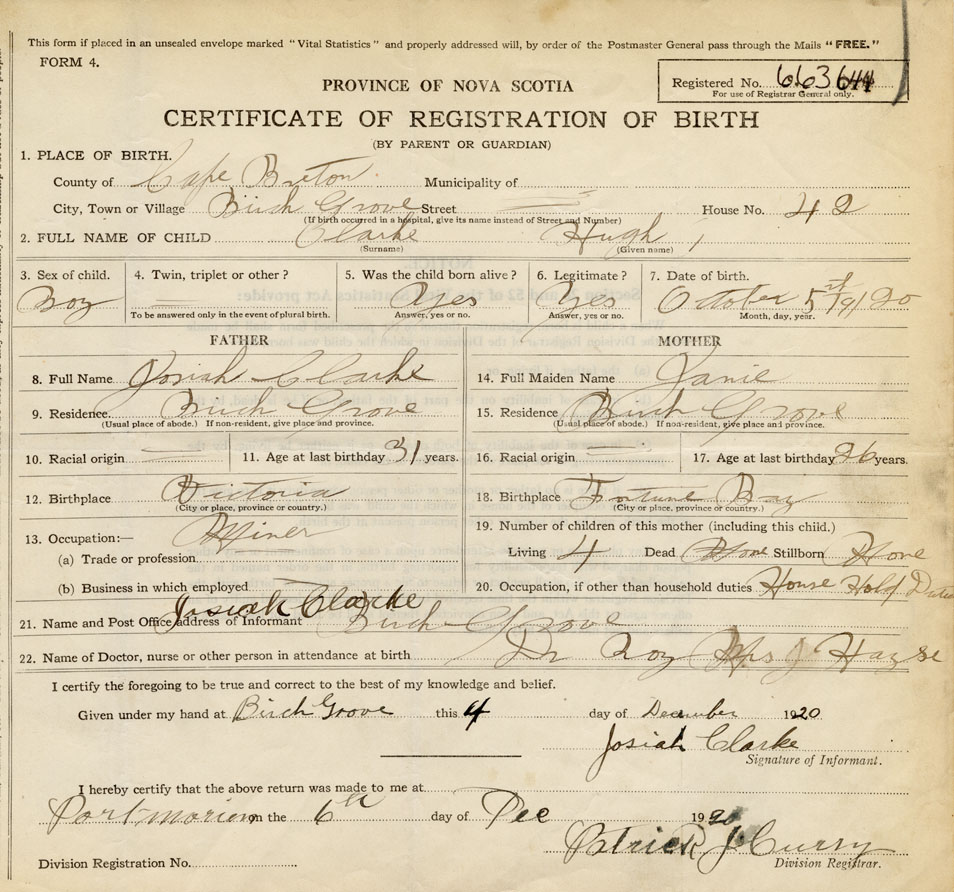 This form if placed in an unsealed envelope marked "Vital Statistics" and properly addressed will, by order of the Postmaster General pass through the Mails "FREE."
FORM 4.
Registered No. 663644
For use of Registrar General only.
PROVINCE OF NOVA SCOTIA
CERTIFICATE OF REGISTRATION OF BIRTH
(BY PARENT OR GUARDIAN)
1. PLACE OF BIRTH.
County of Cape Breton Municipality of
City, Town or Village Birch Grove Street House No. 42
(If birth occurred in a hospital, give its name instead of Street and Number)
2. FULL NAME OF CHILD Clarke Hugh
(Surname) (Given name)
3. Sex of child. 4. Twin, triplet or other? 5. Was the child born alive? 6. Legitimate? 7. Date of birth.
Boy Yes Yes October 5st 1920
To be answered only in the event of plural birth. Answer, yes or no. Answer, yes or no. Month, day, year.
FATHER MOTHER
8. Full Name Josiah Clarke 14. Full Maiden Name Janie
9. Residence. Birch Grove 15. Residence Birch Grove
(Usual place of abode.) If non-resident, give place and province. (Usual place of abode.) If non-resident, give place and province.
10. Racial origin 11. Age at last birthday 31 years. 16. Racial origin 17. Age at last birthday 26 years.
12. Birthplace Victoria 18. Birthplace Fortune Bay
(City or place, province or country.) (City or place, province or country.)
13. Occupation:— Miner 19. Number of children of this mother (including this child.)
(a) Trade or profession. Living 4 Dead None Stillborn None
(b) Business in which employed 20. Occupation, if other than household duties House Hold Duties
Josiah Clarke
21. Name and Post Office address of Informant Birch Grove
22. Name of Doctor, nurse or other person in attendance at birth Dr Roy Mrs J
I certify the foregoing to be true and correct to the best of my knowledge and belief.
Given under my hand at Birch Grove this 4 day of December 1920
Josiah Clarke
Signature of Informant.
I hereby certify that the above return was made to me at
Port morien on the 6th day of Dec 1920
Patrick J Curry
Division Registrar.
Division Registration No.